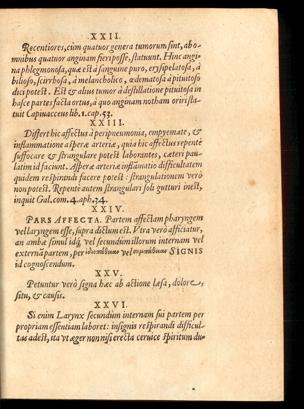 XXII.
Recentiores, cùm quatuor genera tumorum sint, ab o-
mnibus quatuor anginam fieri posse, statuunt. Hinc angi-
na phlegmonosa, quæ est à sanguine puro, erysipelatosa, à
bilioso, scirrhosa, à melancholico, œdematosa à pituitoso
dici potest. Est & alius tumor à destillatione pituitosa in
hasce partes facta ortus, à quo anginam notham oriri sta-
tuit Capiuacceus lib. 1. cap. 53.
XXIII.
Differt hic affectus à peripneumonia, empyemate, &
inflammatione asperæ arteriæ, quia hic affectus repentè
suffocare & strangulare potest laborantes, cæteri pau-
latim id faciunt. Asperæ arteriæ inflāmatio difficultatem
quidem respirandi facere potest: strangulationem verò
non potest. Repentè autem strangulari soli gutturi inest,
inquit Gal. com. 4. aph. 34.
XXIV.
PARS AFFECTA. Partem affectam pharyngem
vel laryngem esse, supra dictum est. Vtra verò afficiatur,
an ambæ simul idq; vel secundum illorum internam vel
externā partem, per vel SIGNIS
id cognoscendum.
XXV.
Petuntur verò signa hæc ab actione læsa, dolore,
situ, & causis.
XXVI.
Si enim Larynx secundùm internam sui partem per
propriam essentiam laboret: insignis respirandi difficul-
tas adest, ita vt æger non nisi erecta ceruice spiritum du-